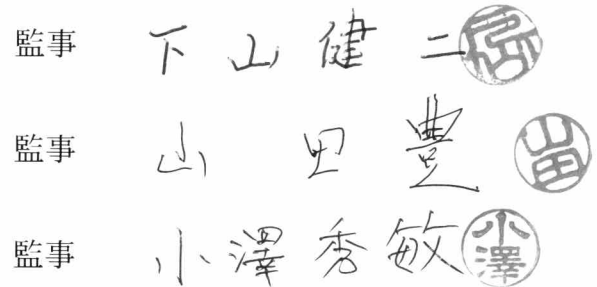 監事 下山健二
監事 山田豊 山田
監事 小澤秀敏 小澤